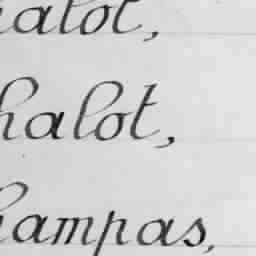 alot,
halot,
hampas,